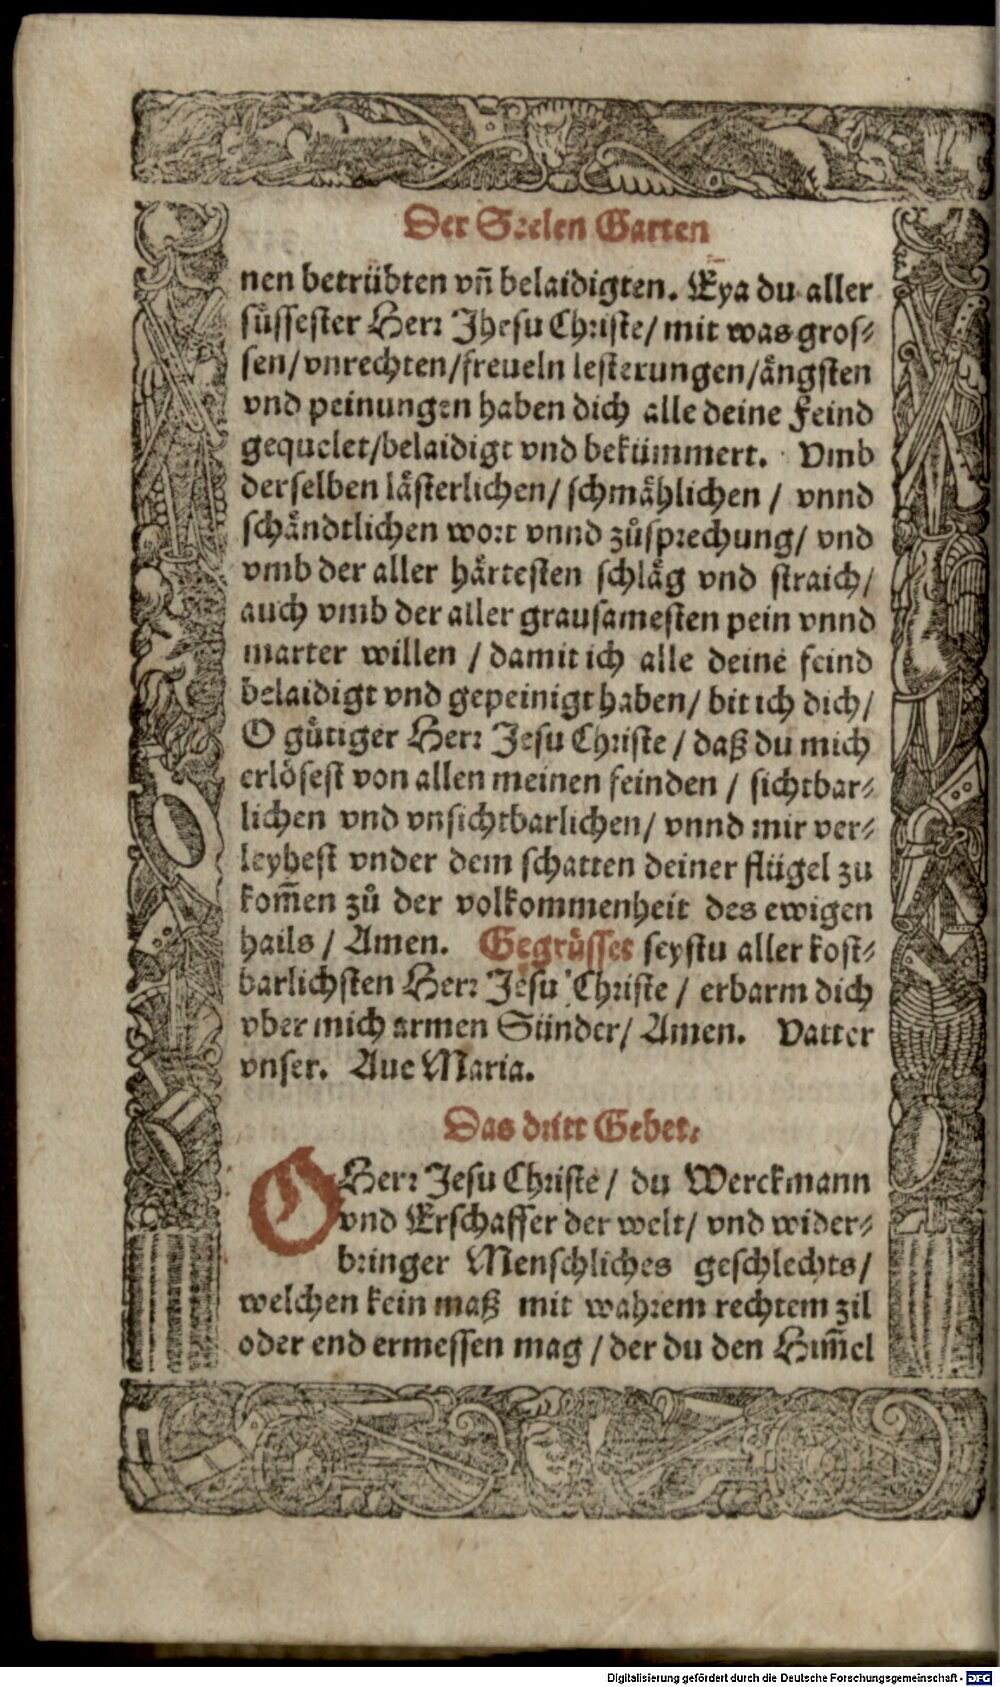 Der Seelen Garten
nen betrübten vñ belaidigten. Eya du aller
süssester Herr Jhesu Christe/ mit was gros⸗
sen/ vnrechten/freueln lesterungen/ängsten
vnd peinungen haben dich alle deine Feind
gequelet/belaidigt vnd bekümmert. Vmb
derselben lästerlichen/ schmählichen / vnnd
schändtlichen wort vnnd zůsprechung/ vnd
vmb der aller härtesten schläg vnd straich/
auch vmb der aller grausamesten pein vnnd
marter willen / damit ich alle deine feind
belaidigt vnd gepeinigt haben/ bit ich dich/
O gütiger Herr Jesu Christe / daß du mich
erlösest von allen meinen feinden / sichtbar⸗
lichen vnd vnsichtbarlichen/ vnnd mir ver⸗
leyhest vnder dem schatten deiner flügel zu
kom̃en zů der volkommenheit des ewigen
hails / Amen. Gegrüsset seystu aller kost⸗
barlichsten Herr Jesu Christe / erbarm dich
vber mich armen Sünder/ Amen. Vatter
vnser. Aue Maria.
Das dritt Gebet.
O Herr Jesu Christe / du Werckmann
vnd Erschaffer der welt/ vnd wider⸗
bringer Menschliches geschlechts/
welchen kein maß mit wahrem rechtem zil
oder end ermessen mag / der du den Him̃el
Digitalisierung gefördert durch die Deutsche Forschungsgemeinschaft - DFG